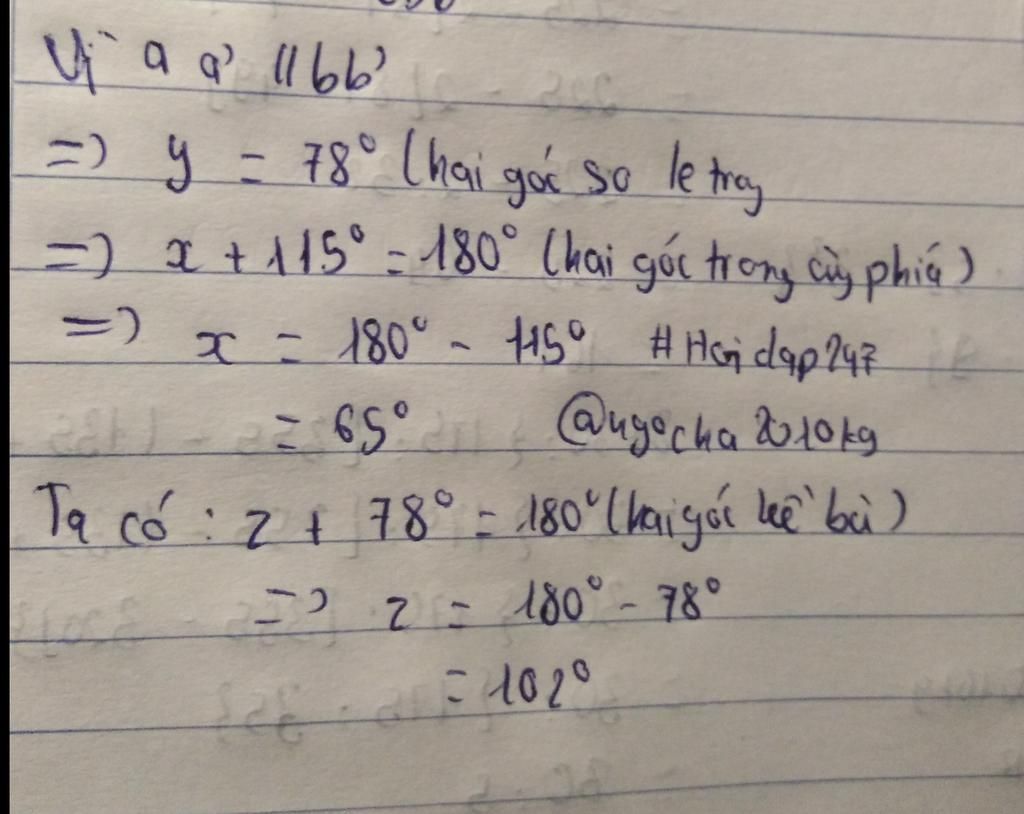 Vì aa' // bb'
=> y = 78° (hai góc so le trong
=> x + 115° = 180° (hai góc trong cùng phía)
=> x = 180° - 115° #Hoidap247
= 65° @ngocha2010kg
Ta có: z + 78° = 180° (hai góc kề bù)
=> z = 180° - 78°
= 102°